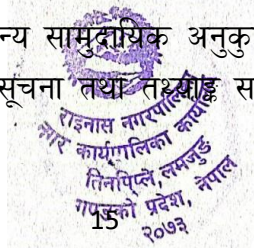 न्य सामुदायिक अनुकु
सूचना तथा तथ्याङ्क स
राइनास नगरपालिका
नगर कार्यपालिका कार्या
तिनपिप्ले, लमजुङ
गण्डकी प्रदेश, नेपाल
15
२०७३